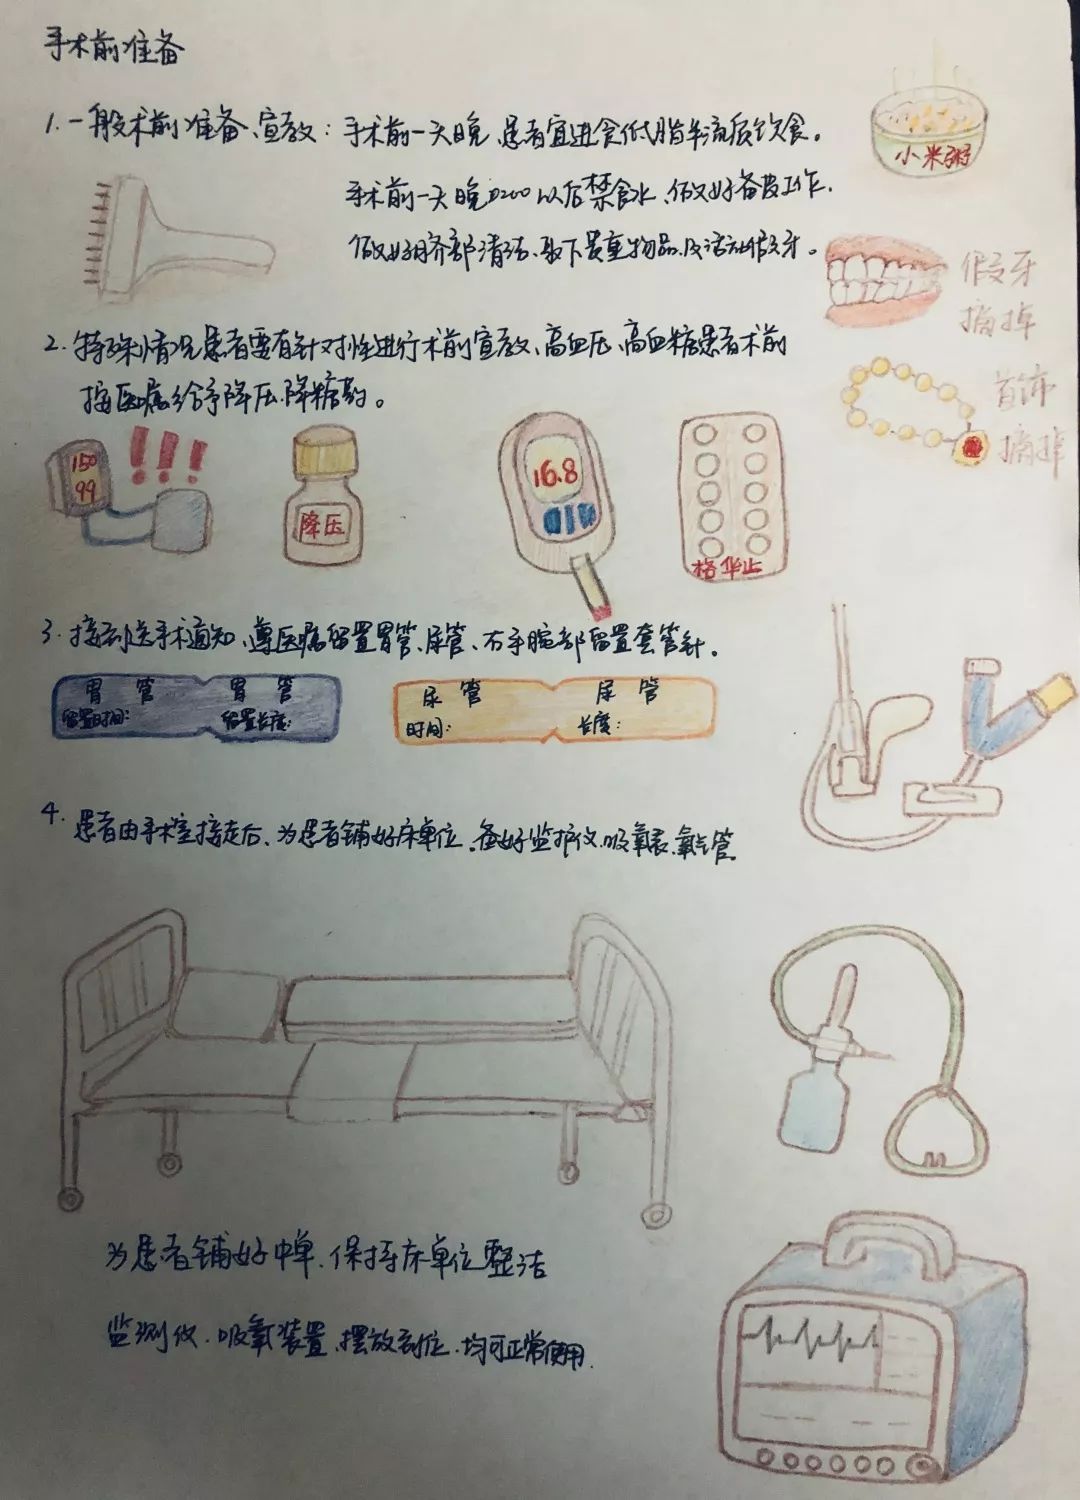 手术前准备
1. 一般术前准备、宣教：手术前一天晚，患者宜进食低脂半流质饮食。
小米粥
手术前一天晚2200以后禁食水、做好备皮工作、
做好脐部清洁、取下贵重物品、及活动假牙。
假牙
摘掉
2. 特殊情况患者要有针对性进行术前宣教、高血压、高血糖患者术前
按医嘱给予降压、降糖药。
首饰
摘掉
150
99
!!!
降压
16.8
格华止
3. 接到送手术通知、遵医嘱留置胃管、尿管、右手腕部留置套管针。
胃管 胃管
留置时间： 留置长度：
尿管 尿管
时间： 长度：
4. 患者由手术室接走后、为患者铺好床单位、备好监护仪、吸氧表、氧气管
为患者铺好中单、保持床单位整洁
监测仪、吸氧装置、摆放到位、均可正常使用.